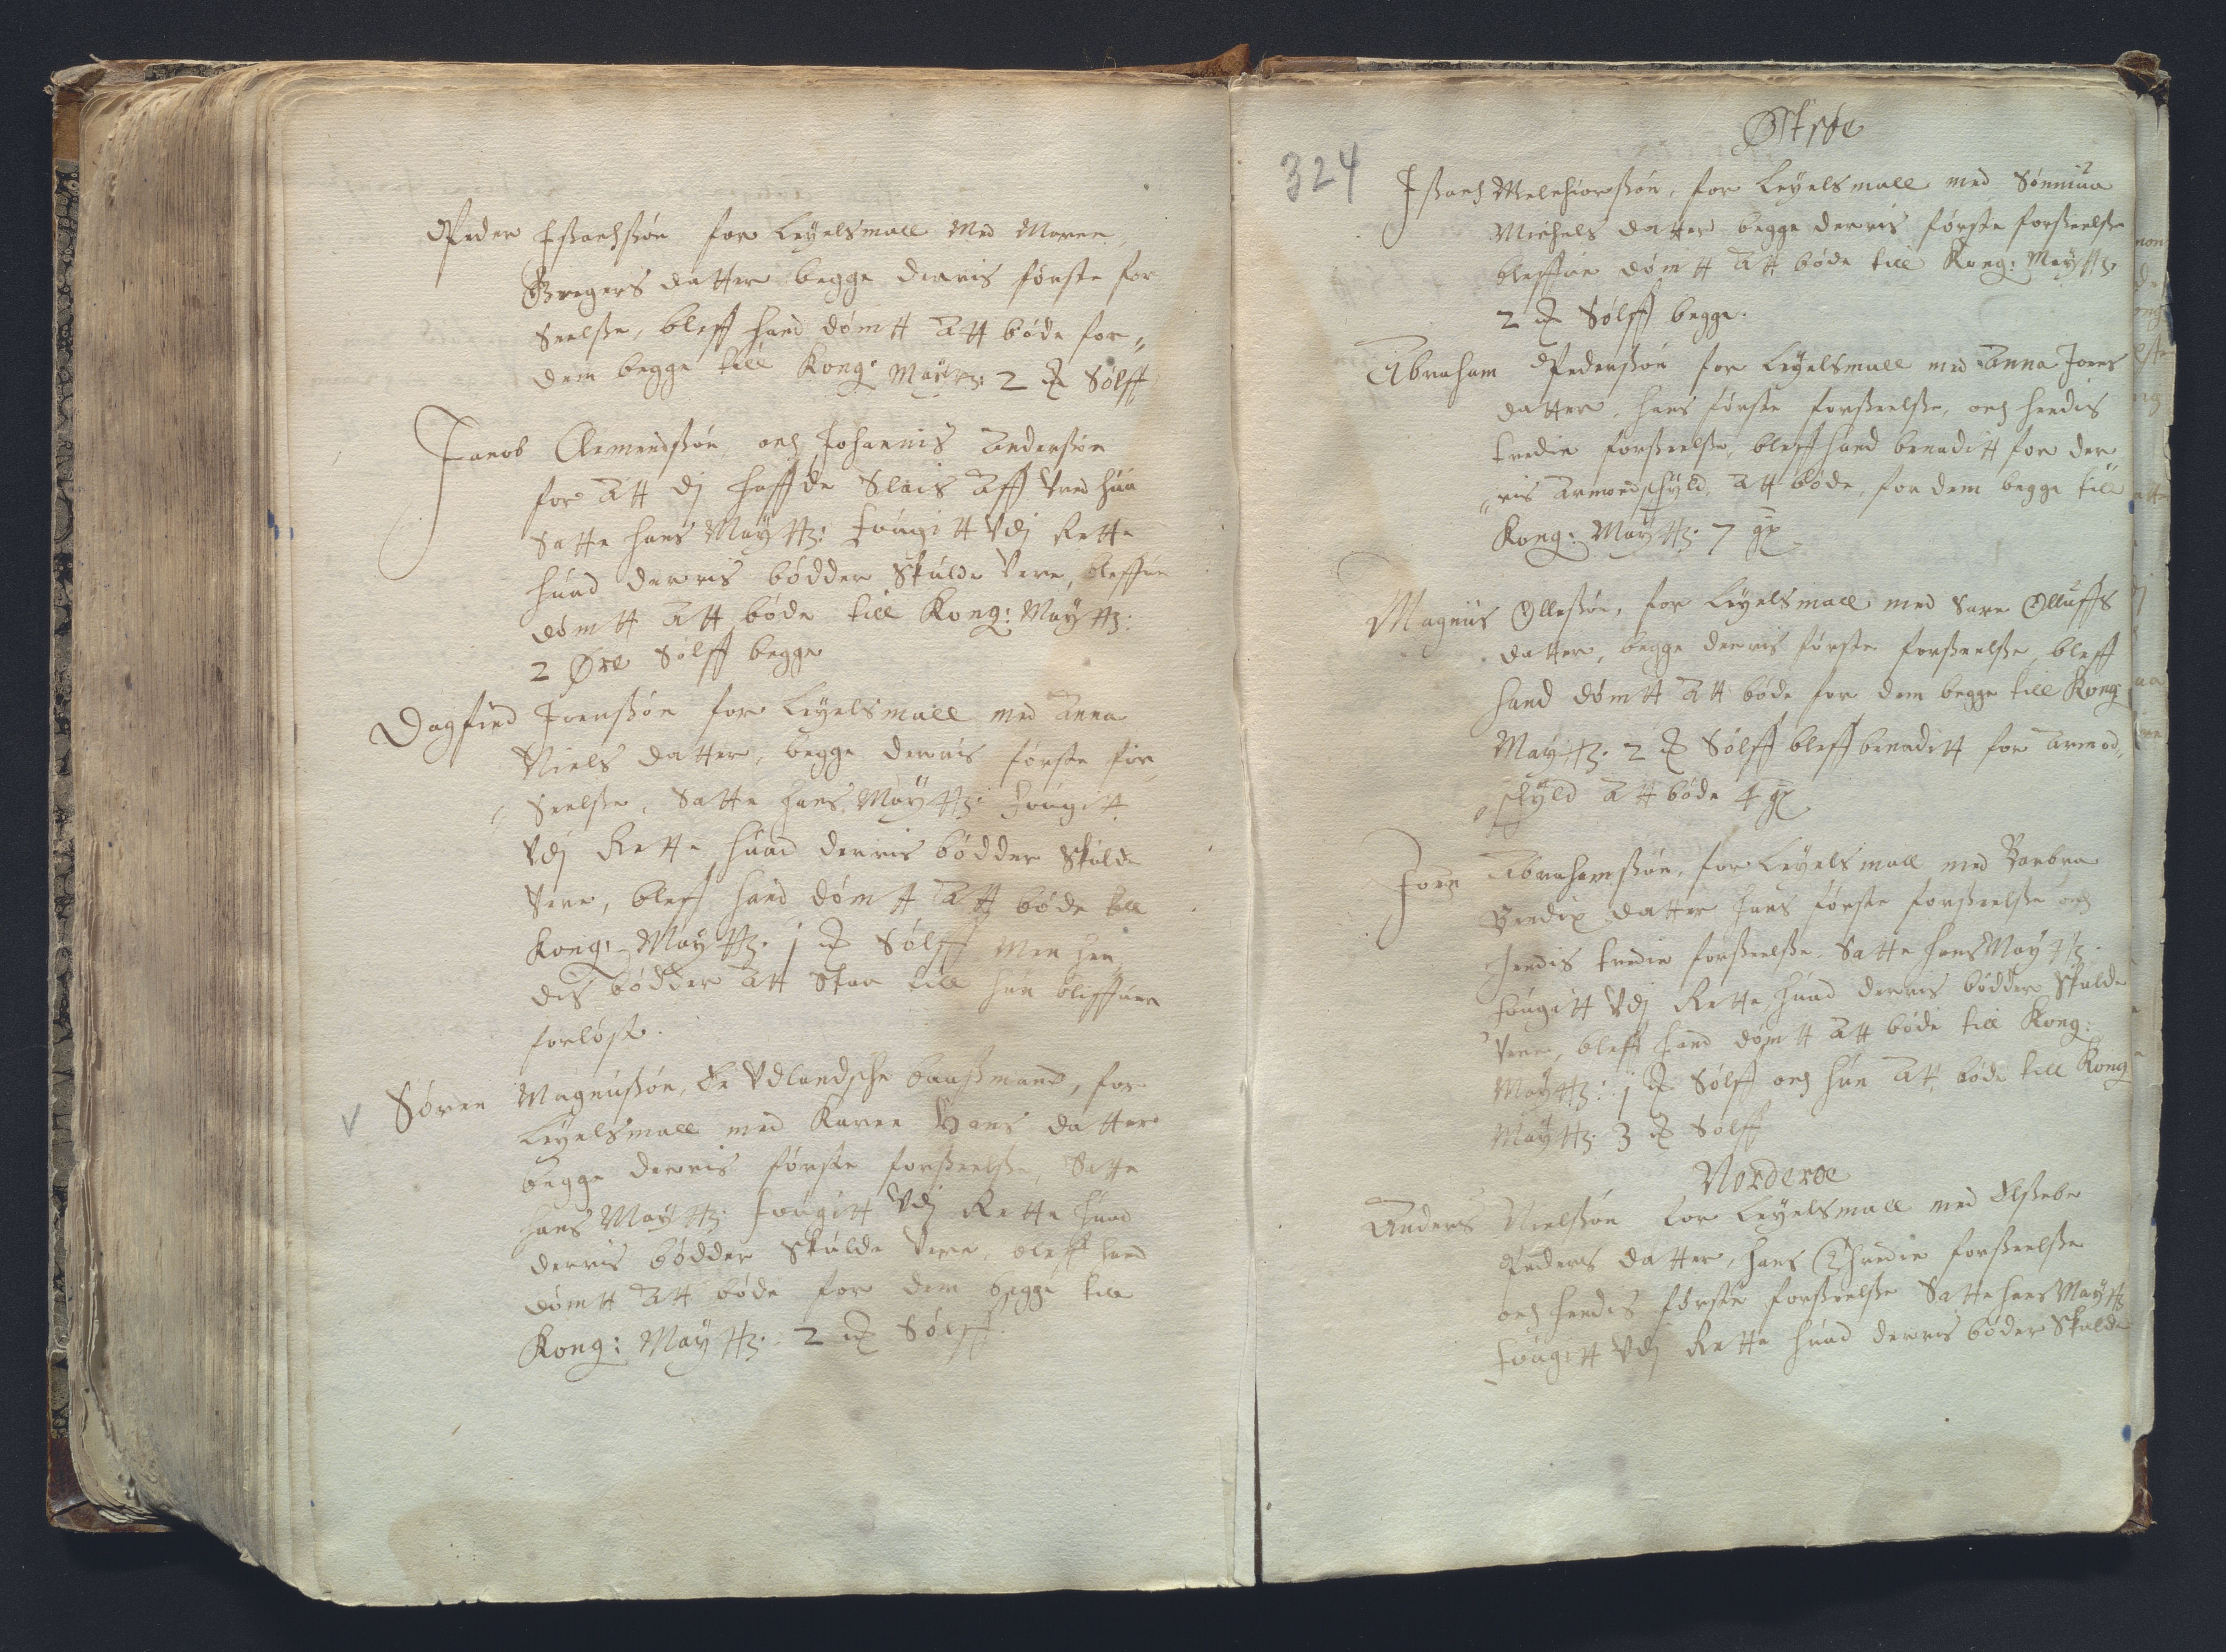 Peder Issachssøn for Leyelsmall Med Maren
Gregers datter begge derris første for
Seelsse, bleff hand dømtt att bøde for„
dem begge till Kong: Maÿttz: 2 ꝳ Sølff
Jacob Clemendssøn och Johannis Anderssøn
for att dj haffde Slais aff Vred huu
Satte hans Maÿttz: fougitt Vdj Rette
huad derris bødder Skulde Vere, bleffue
dømtt att bøde till Kong: Maÿttz:
2 Øre Sølff begge
Dagfind Joenssøn for Leyelsmall med Anna
Niels datter, begge derris første for
Seelsse, Satte hans Maÿttz: fougitt
Vdj Rette huad derris bødder Skulde
Vere, bleff hand dømtt att bøde till
Kong: Maÿttz: j ꝳ Sølff Men hen
dis bødder att Staa till hun bliffuer
forløst.
Søren Magnussøn, En Vdlandsche baaszmand, for
Leyelsmall med Karen Hans datter
begge derris første forsseelsse, Satte
hans Maÿttz: fougitt Vdj Rette huad
derris bødder Skulde Vere, bleff hand
dømtt att bøde for dem begge till
Kong: Maÿttz: 2 ꝳ Sølff.
324
Østrøe
Issach Melchiorssøn, for Leyelsmall med Sønniua
Michels datter begge derris første forsseelsse
bleffue dømtt att bøde till Kong: Maÿttz:
2 ꝳ Sølff begge.
Abraham Pederssøn for Leyelsmall med Anna Joens
datter, hans første forsseelsse, och hendis
tredie forsseelsse, bleff hand benaditt for der
„ris armodschyld, att bøde, for dem begge till
Kong: Maÿttz: 7 gx
Magnus Ollessøn, for Leyelsmall med Sare Olluffs
datter, begge derris første forsseelsse, bleff
hand dømtt att bøde for dem begge till Kong:
Maÿttz: 2 ꝳ Sølff bleff benaditt for armod„
schyld att bøde 4 gx
Joen Abrahamssøn, for Leyelsmall med Barbra
Bendix datter hans første forsseelsse och
hendis tredie forsseelsse, Satte hans Maÿttz:
fougitt Vdj Rette huad derris bødder Skulde
Vere, bleff hand dømtt att bøde till Kong:
Maÿttz: j ꝳ Sølff och hun att bøde till Kong
Maÿttz: 3 ꝳ Sølff
Norderøe
Anders Nielssøn for Leyelsmall med Elssebe
Peders datter, hans Thredie forsseelsse
och hendis første forsseelsse Satte hans Maÿttz
fougitt Vdj Rette huad derris bøder Skulde